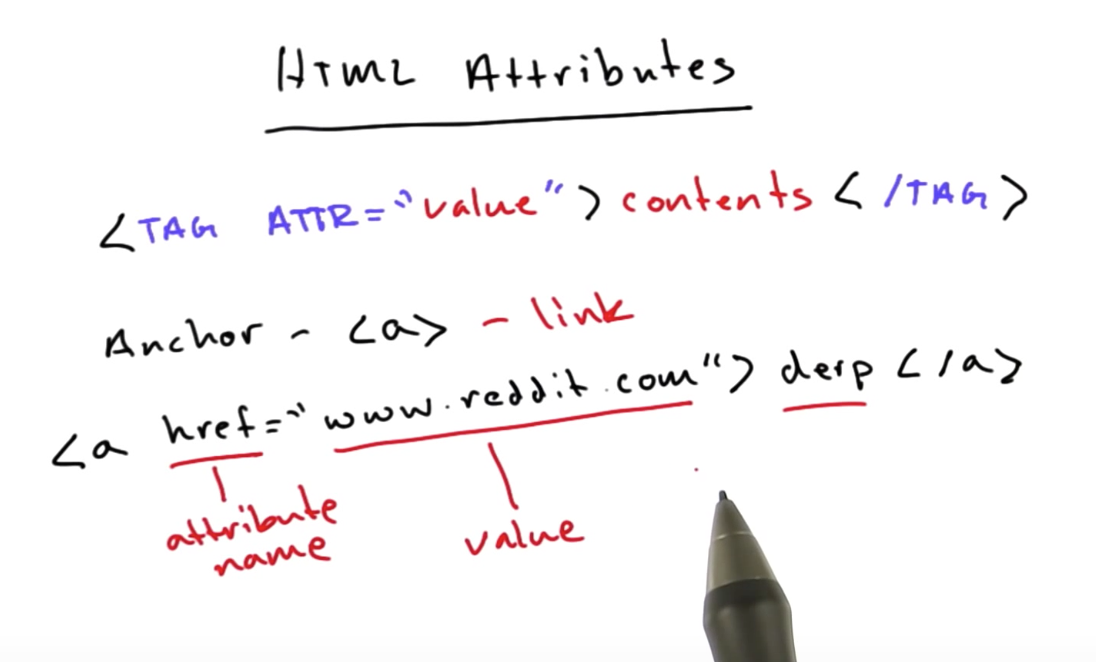 HTML Attributes
<TAG ATTR="value"> contents </TAG>
Anchor - <a> - link
<a href="www.reddit.com"> derp </a>
attribute name
value